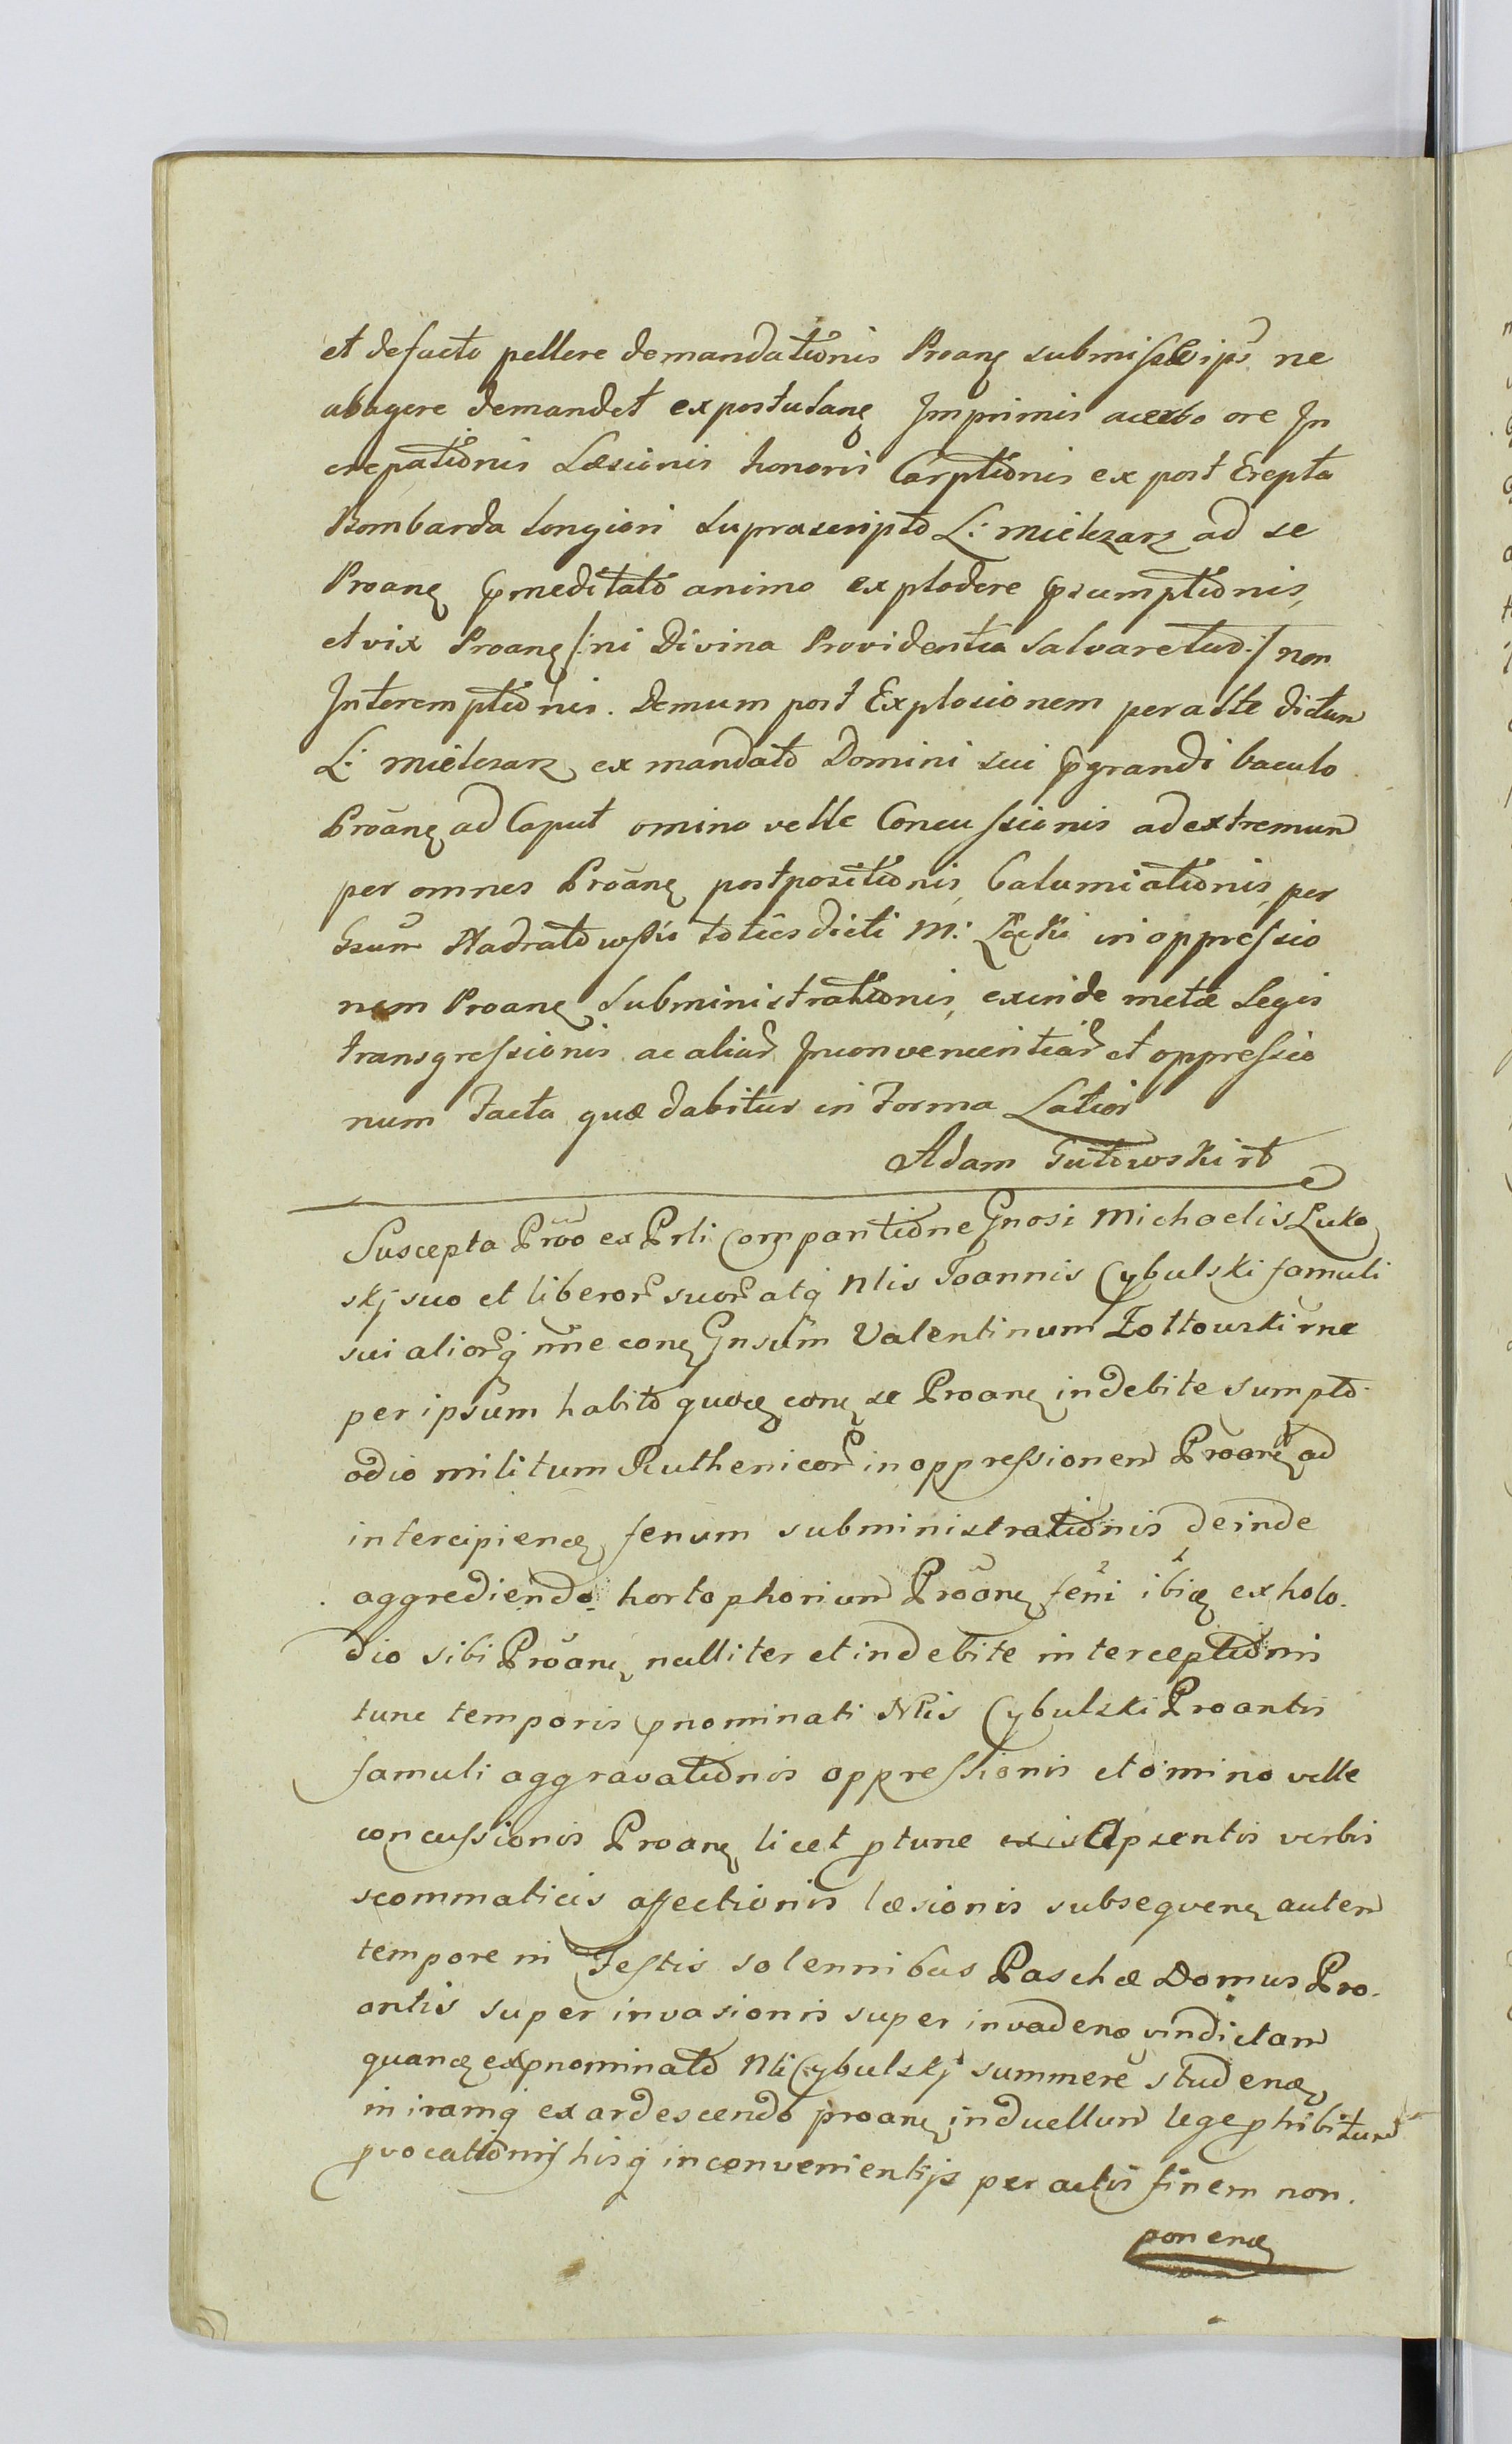 et defacto pellere demandationis Proanę submisse ips ne
abagere demandet expostulanę Imprimis acerbo ore In
crepationis Læsionis honoris Carptionis ex post Erepta
Bombarda longiori suprascripto L: Mielczarz ad se
Proanę pmeditato animo explodere psumptionis,
et vix Proanę /:ni Divina Providentia salvaretur:/ non
Interemptionis. Demum post Explosionem per alte dictum
L: Mielczarz ex mandato Domini sui pgrandi baculo
Proanę ad Caput omino velle Concussionis ad extremum
per omnes Proanę postpositionis, Calumiationis, per
Gsum Nadratowski toties dicti M: Łącki in oppressio
nem Proanę subministrationis, exinde metæ Legis
transgressionis ac aliar Inconvenientiar et oppressio
num Facta quæ dabitur in Forma Latior
Adam Gutowski
Suscepta Proo ex Prli Compantione Gnosi Michaelis Łuko
skj suo et liberor suor atq Nlis Joannis Cybulski famuli
sui aliorq nne conę Gnsum Valentinum Zołtowski rne
per ipsum habito quoę conę se Proanę indebite sumpto
odio militum Ruthenicor in oppressionem Proanę ad
intercipiendę fenum subministrationis deinde
aggrediendo hortophorium Proanę feni ibię ex holo.
dio sibi Proanę nulliter et indebite interceptionis
tunc temporis pnominati Nlis Cybulski Proantis
famuli aggravationis oppressionis et omino velle
concussionis Proanę licet ptunc apsentis verbis
scommaticis affectionis læsionis subsequenę autem
tempore in Festis solennibus Paschæ Domus Pro-
antis super invasionis super invadenę vindictam
quanę ex pnominato Nli Cybulskj summere studenę
in iramq exardescendo proanę in duellum lege phibitum
pvocationis hisq inconvenientijs per actis finem non.
ponenę